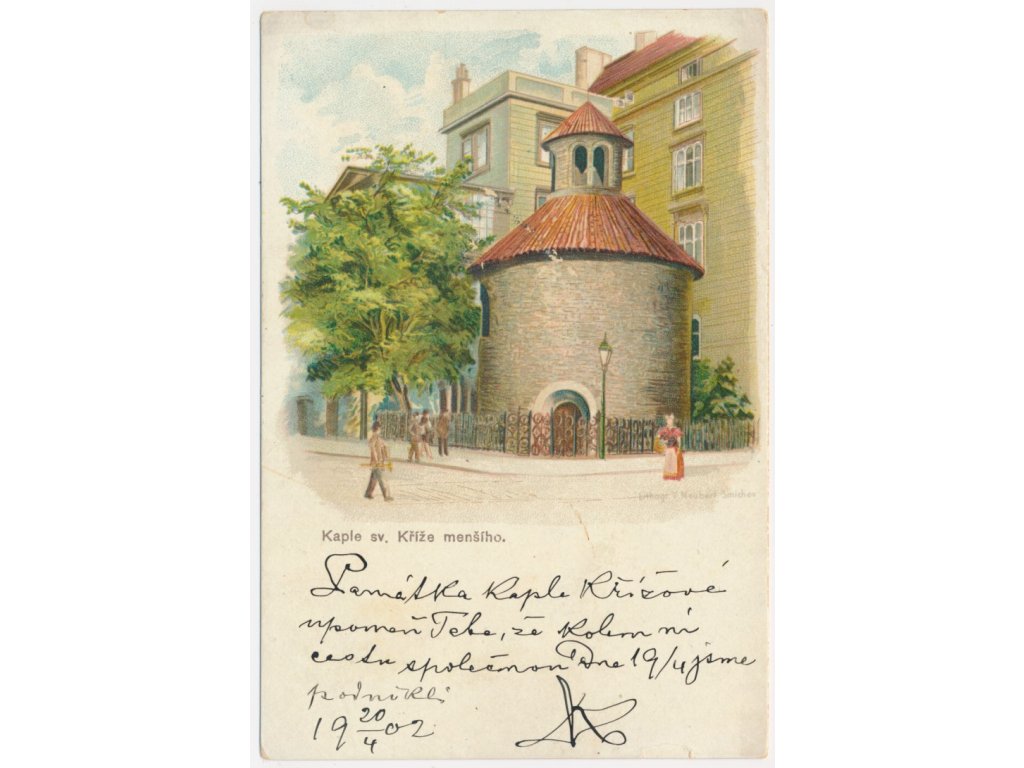 Lithogr. V. Neubert Smichov
Kaple sv. Kříže menšího.
Památka kaple Křížové
upomeň Tebe, že kolem ní
cestu společnou Dne 19/4 jsme
podnikli
19 20/4 02
K